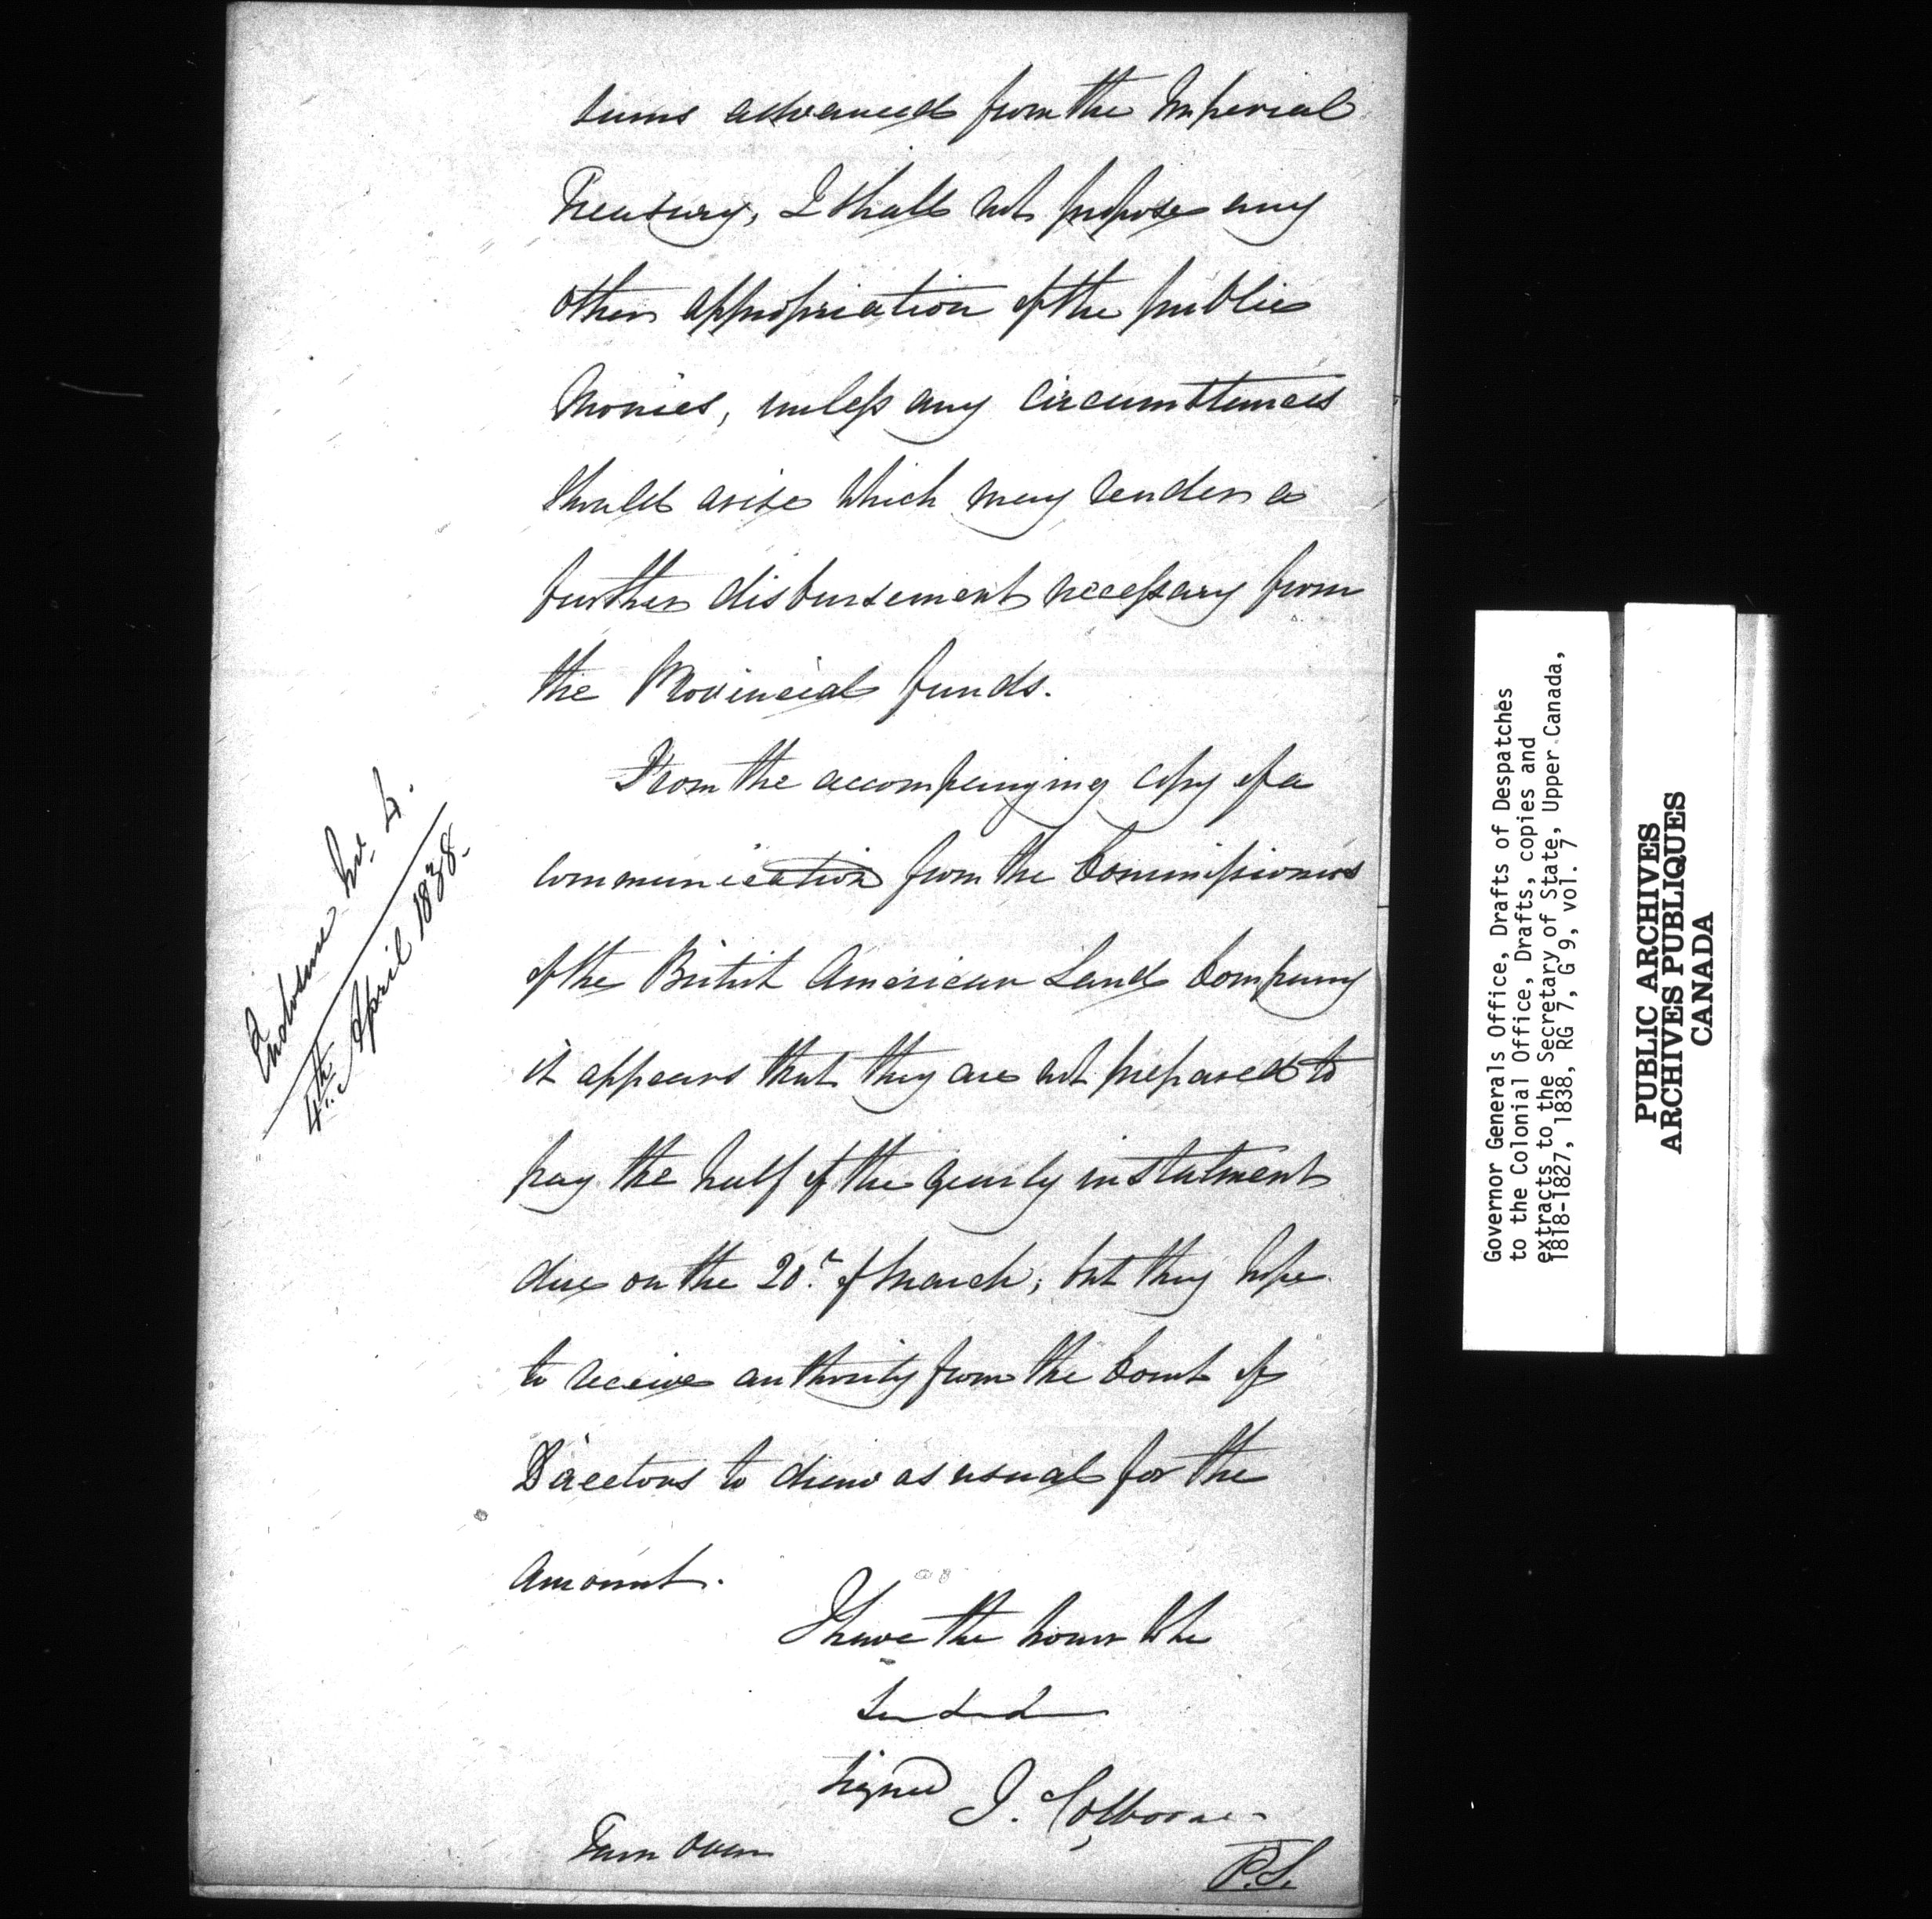 sums advanced from the Imperial
Treasury, I shall not propose any
other appropriation of the public
Monies, unless any circumstances
should arise which may render a
further disbursement necessary from
the Provincial funds.
From the accompanying copy of a
communication from the Commissioners
of the British American Land Company
it appears that they are not prepared to
pay the half of the yearly instalment
due on the 20th of March; but they hope
to receive authority from the Court of
Directors to draw as usual for the
Amount.
I have the honor to be
Signed J. Colborne
Turn over
P.S.
Enclosure No. 4.
4th April 1838.
Governor Generals Office, Drafts of Despatches
to the Colonial Office, Drafts, copies and
extracts to the Secretary of State, Upper Canada,
1818-1827, 1838, RG 7, G 9, vol. 7
PUBLIC ARCHIVES
ARCHIVES PUBLIQUES
CANADA